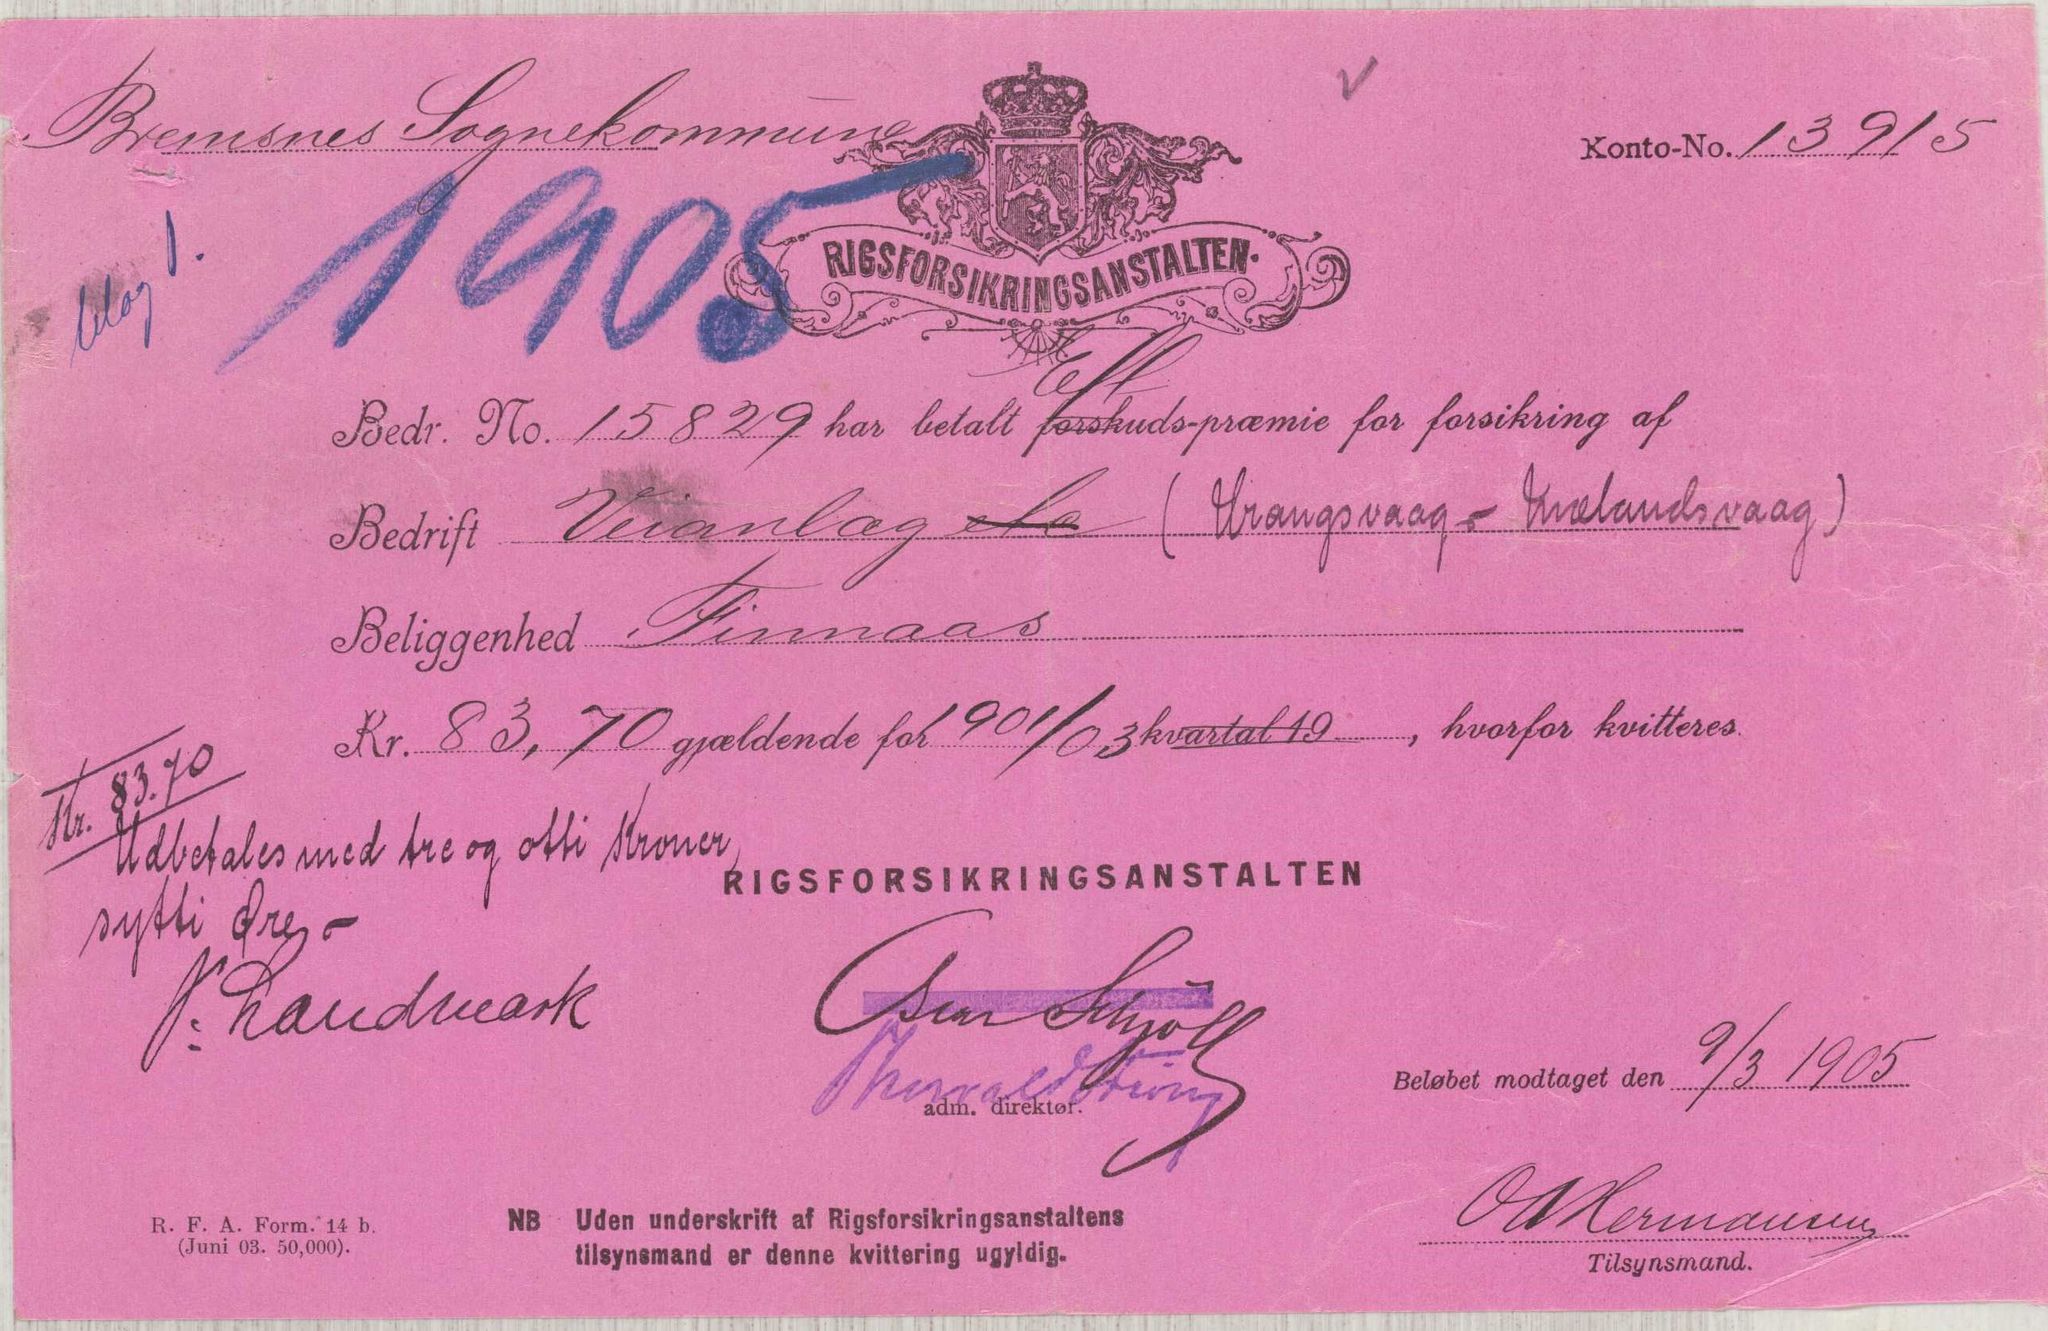 Bremsnes Sognekommune
Konto-No. 13915
1905
bilag 1.
RIGSFORSIKRINGSANSTALTEN.
Eft
Bedr. No. 15829 har betalt forskuds-præmie for forsikring af
Bedrift Veianlæg (Vrangsvaag - Mælandsvaag)
Beliggenhed Finnaas
Kr. 83,70 gjældende for 1901/03 kvartal 19 , hvorfor kvitteres.
Kr. 83.70
Udbetales med tre og otti Kroner,
sytti Øre,-
Landmark
RIGSFORSIKRINGSANSTALTEN
Oscar Schjöll
adm. direktør.
Beløbet modtaget den 9/3 1905
O Hermansen
Tilsynsmand.
R. F. A. Form. 14 b.
(Juni 03. 50,000).
NB Uden underskrift af Rigsforsikringsanstaltens
tilsynsmand er denne kvittering ugyldig.